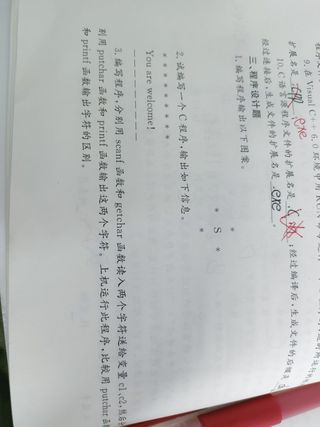 9. 在 Visual C++ 6.0 环境中用 RUN
扩展名是 exe
10. C 语言源程序文件的扩展名是 ;经过编译后,生成文件的后缀
经过连接后,生成文件的扩展名是 exe 。
三、程序设计题
1. 编写程序输出以下图案。
*
* S *
*
2. 试编写一个 C 程序,输出如下信息。
* * * * * * * * *
You are welcome!
— — — — — — — —
3. 编写程序,分别用 scanf 函数和 getchar 函数读入两个字符送给变量 c1、c2,然后
别用 putchar 函数和 printf 函数输出这两个字符。上机运行此程序,比较用 putchar 函
和 printf 函数输出字符的区别。